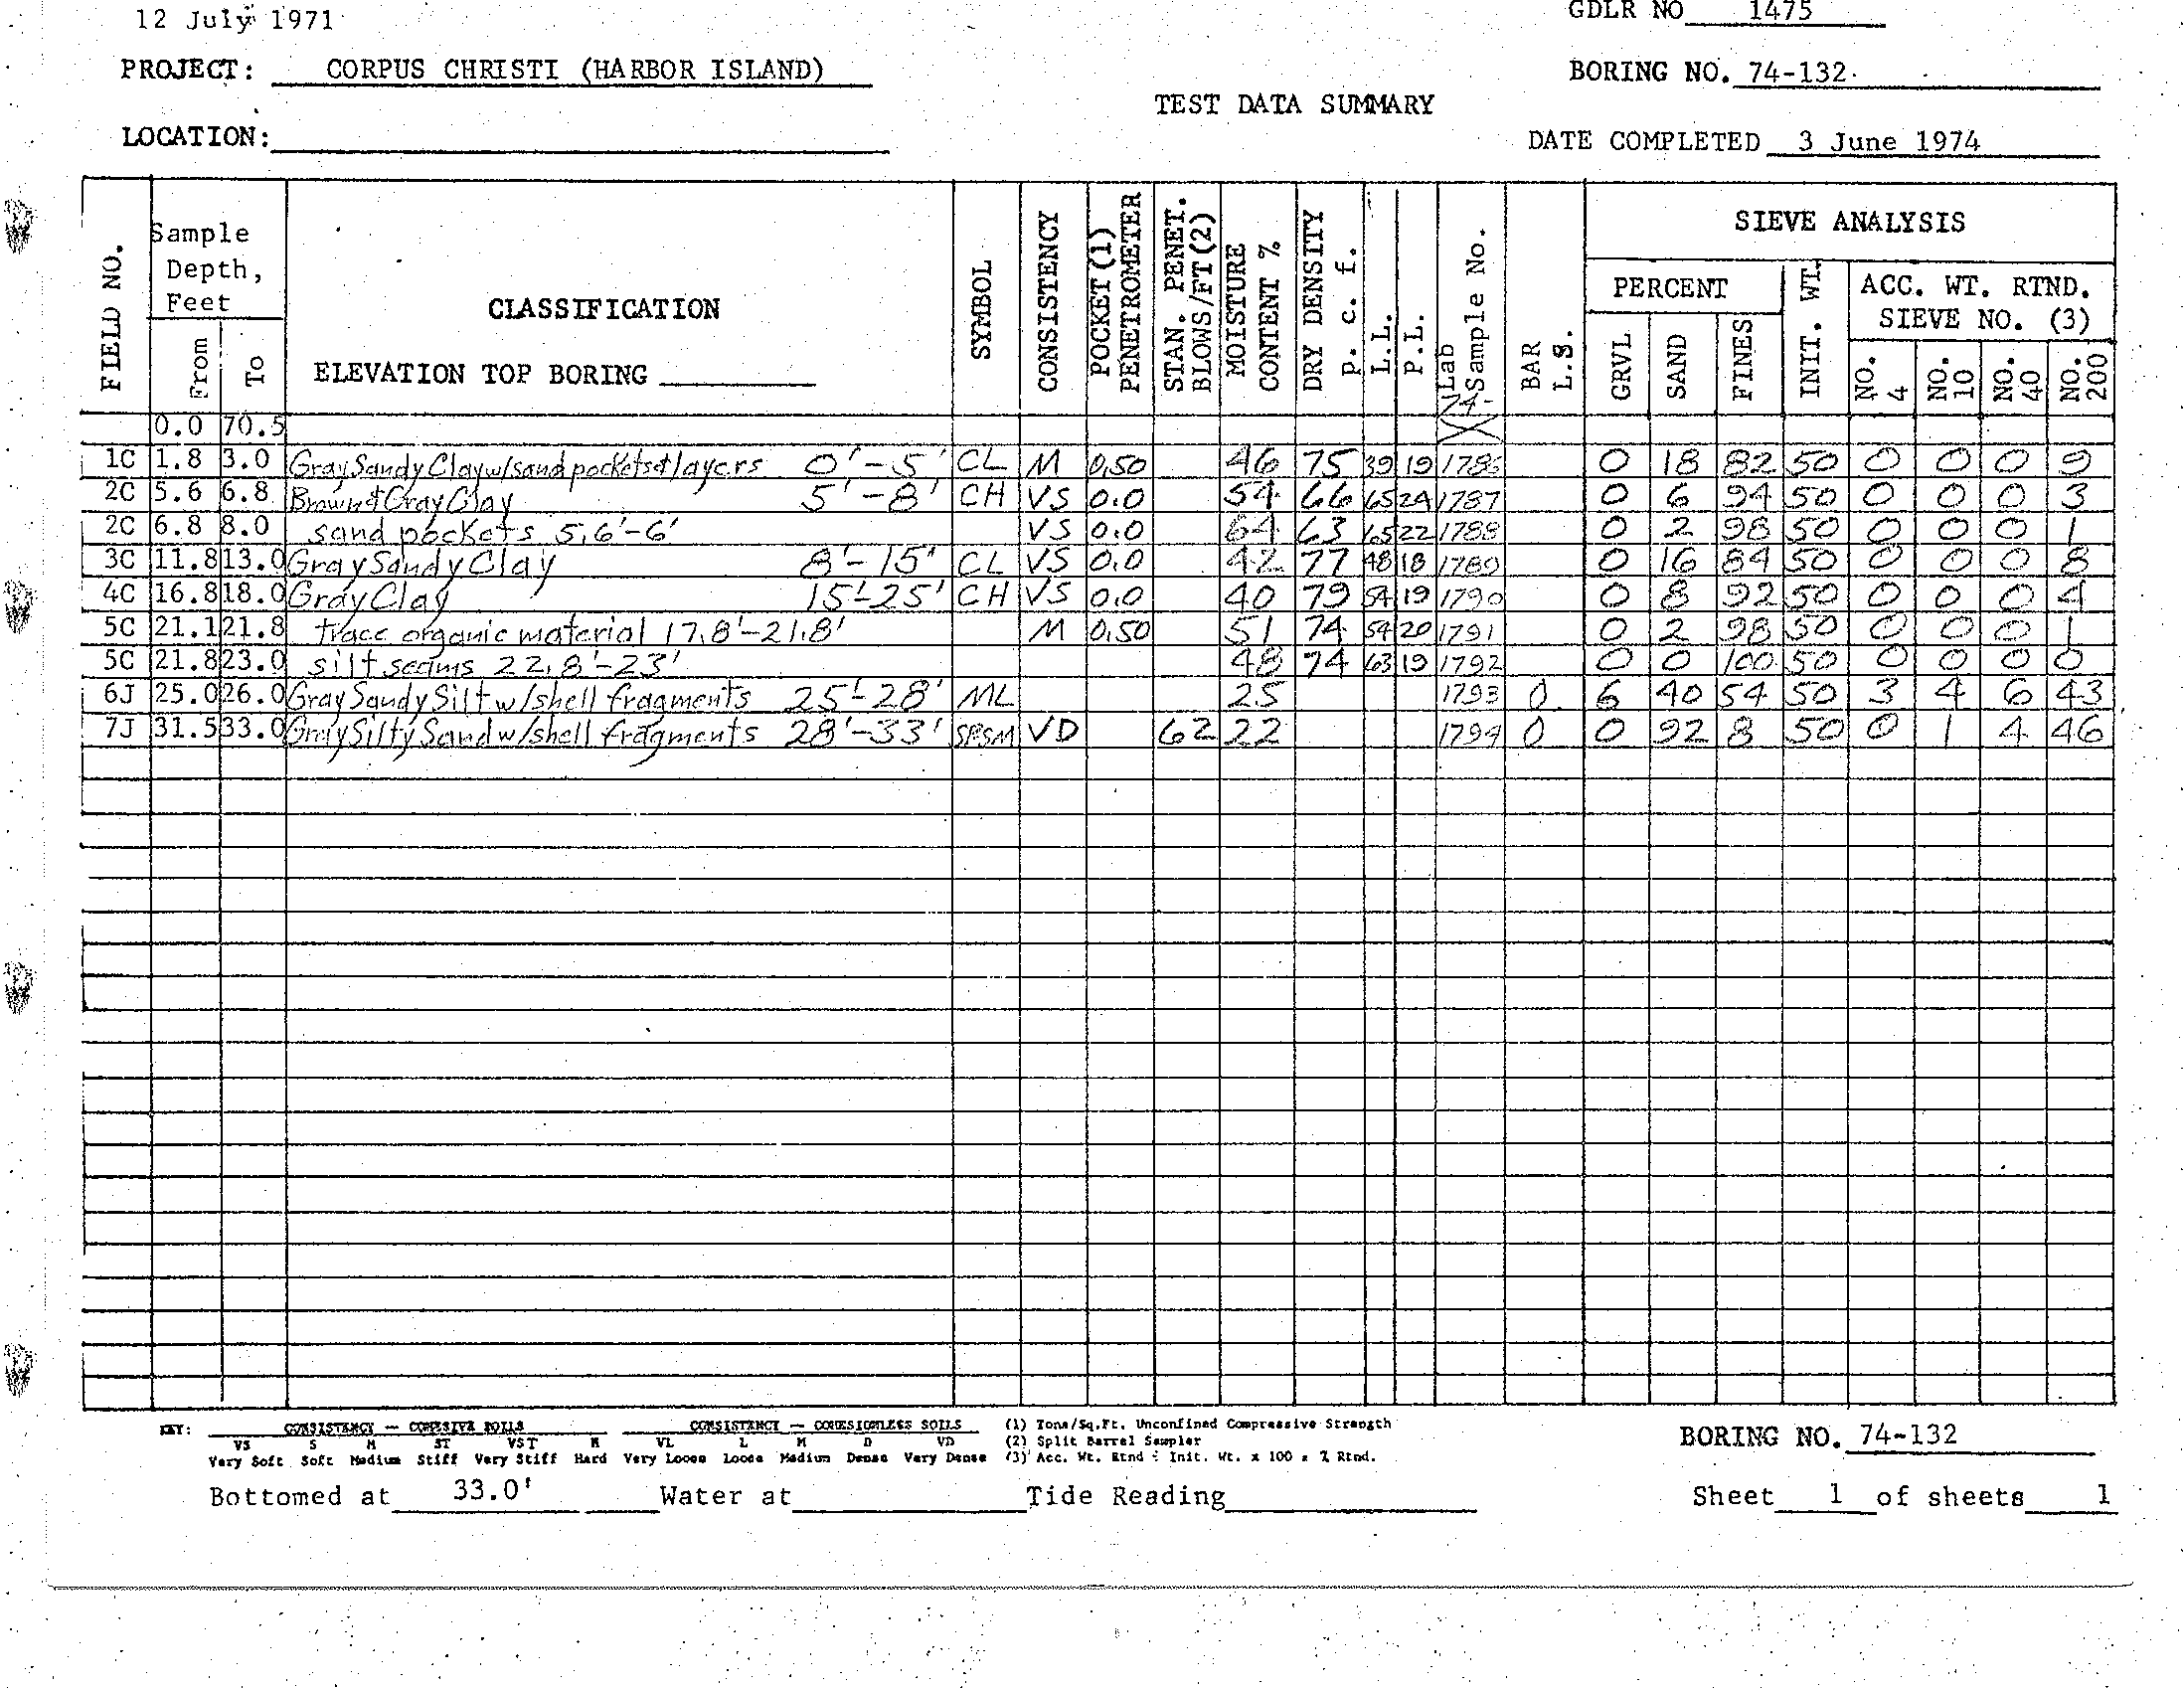 12 July 1971 GDLR NO 1475
PROJECT: CORPUS CHRISTI (HARBOR ISLAND) BORING NO. 74-132
TEST DATA SUMMARY
LOCATION: DATE COMPLETED 3 June 1974
FIELD NO. Sample Depth, Feet From To CLASSIFICATION ELEVATION TOP BORING SYMBOL CONSISTENCY POCKET (1) PENETROMETER STAN. PENET. BLOWS/FT (2) MOISTURE CONTENT % DRY DENSITY p. c. f. L.L. P.L. Lab Sample No. 74- BAR L.S. SIEVE ANALYSIS PERCENT GRVL SAND FINES INIT. WT. ACC. WT. RTND. SIEVE NO. (3) NO. 4 NO. 10 NO. 40 NO. 200
0.0 70.5
1C 1.8 3.0 Gray Sandy Clay w/sand pockets & layers 0'-5' CL M 0.50 46 75 39 19 1786 0 18 82 50 0 0 0 9
2C 5.6 6.8 Brown & Gray Clay 5'-8' CH VS 0.0 54 66 65 24 1787 0 6 94 50 0 0 0 3
2C 6.8 8.0 sand pockets 5.6'-6' VS 0.0 64 63 65 22 1788 0 2 98 50 0 0 0 1
3C 11.8 13.0 Gray Sandy Clay 8'-15' CL VS 0.0 42 77 48 18 1789 0 16 84 50 0 0 0 8
4C 16.8 18.0 Gray Clay 15'-25' CH VS 0.0 40 79 54 19 1790 0 8 92 50 0 0 0 4
5C 21.1 21.8 trace organic material 17.8'-21.8' M 0.50 51 74 54 20 1791 0 2 98 50 0 0 0 1
5C 21.8 23.0 silt seams 22.8'-23' 48 74 63 19 1792 0 0 100 50 0 0 0 0
6J 25.0 26.0 Gray Sandy Silt w/shell fragments 25'-28' ML 25 1793 0 6 40 54 50 3 4 6 43
7J 31.5 33.0 Gray Silty Sand w/shell fragments 28'-33' SPSM VD 62 22 1794 0 0 92 8 50 0 1 4 46
KEY: CONSISTENCY — COHESIVE SOILS CONSISTENCY — COHESIONLESS SOILS (1) Tons/Sq.Ft. Unconfined Compressive Strength BORING NO. 74-132
VS S M ST VST H VL L M D VD (2) Split Barrel Sampler
Very Soft Soft Medium Stiff Very Stiff Hard Very Loose Loose Medium Dense Very Dense (3) Acc. Wt. Rtnd ÷ Init. Wt. x 100 = % Rtnd.
Bottomed at 33.0' Water at Tide Reading Sheet 1 of sheets 1